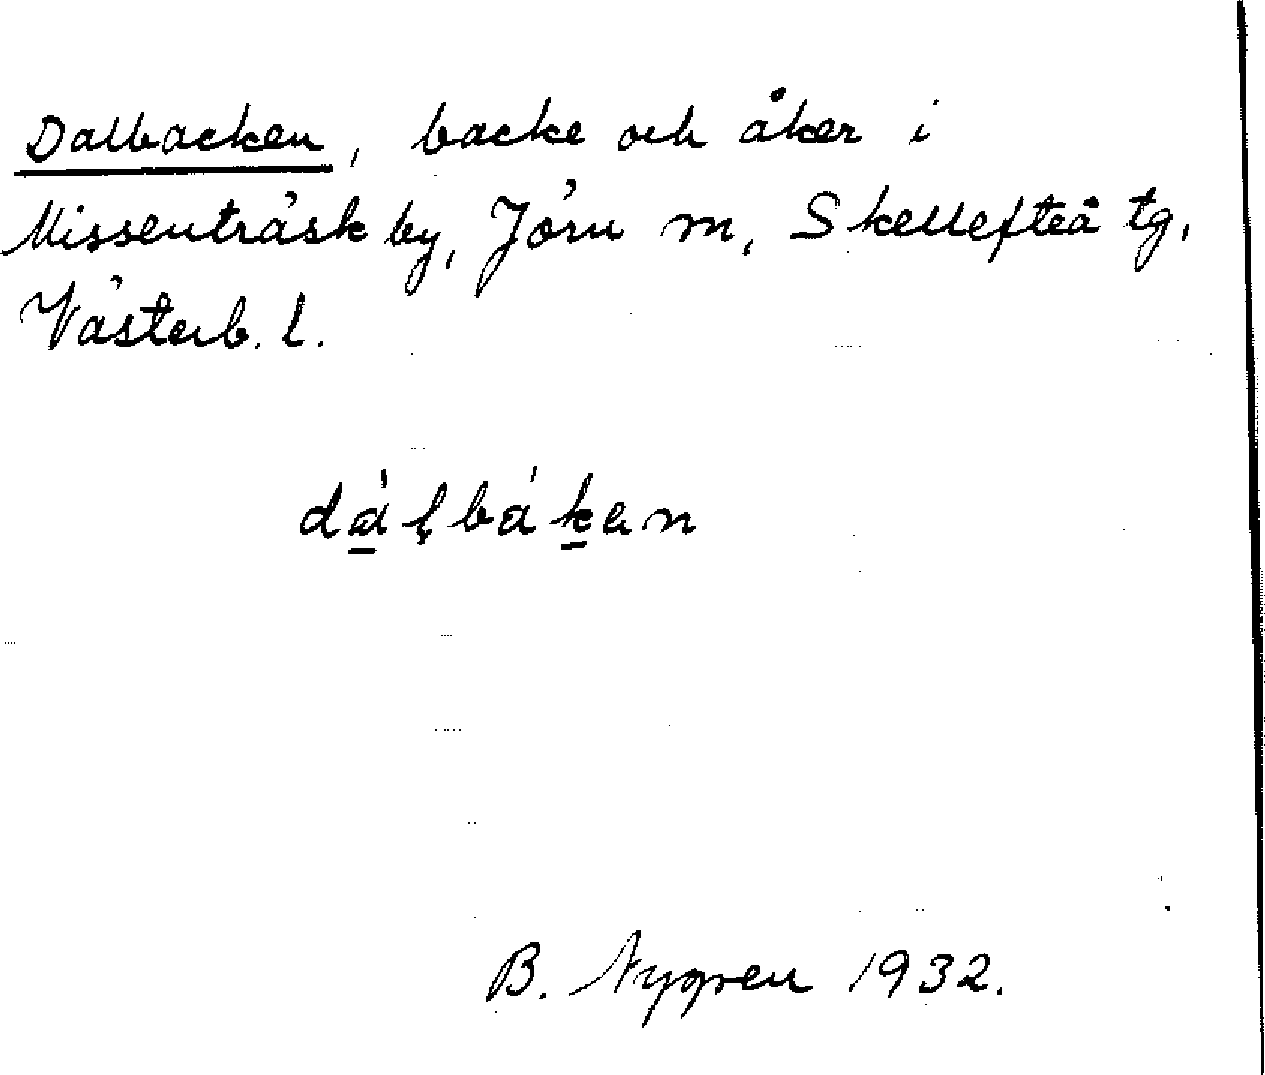 Dalbacken, backe och åker i
Missenträsk by, Jörn sn, Skellefteå tg,
Västerb. l.
dà̲ḷbák̲en
B. Nygren 1932.